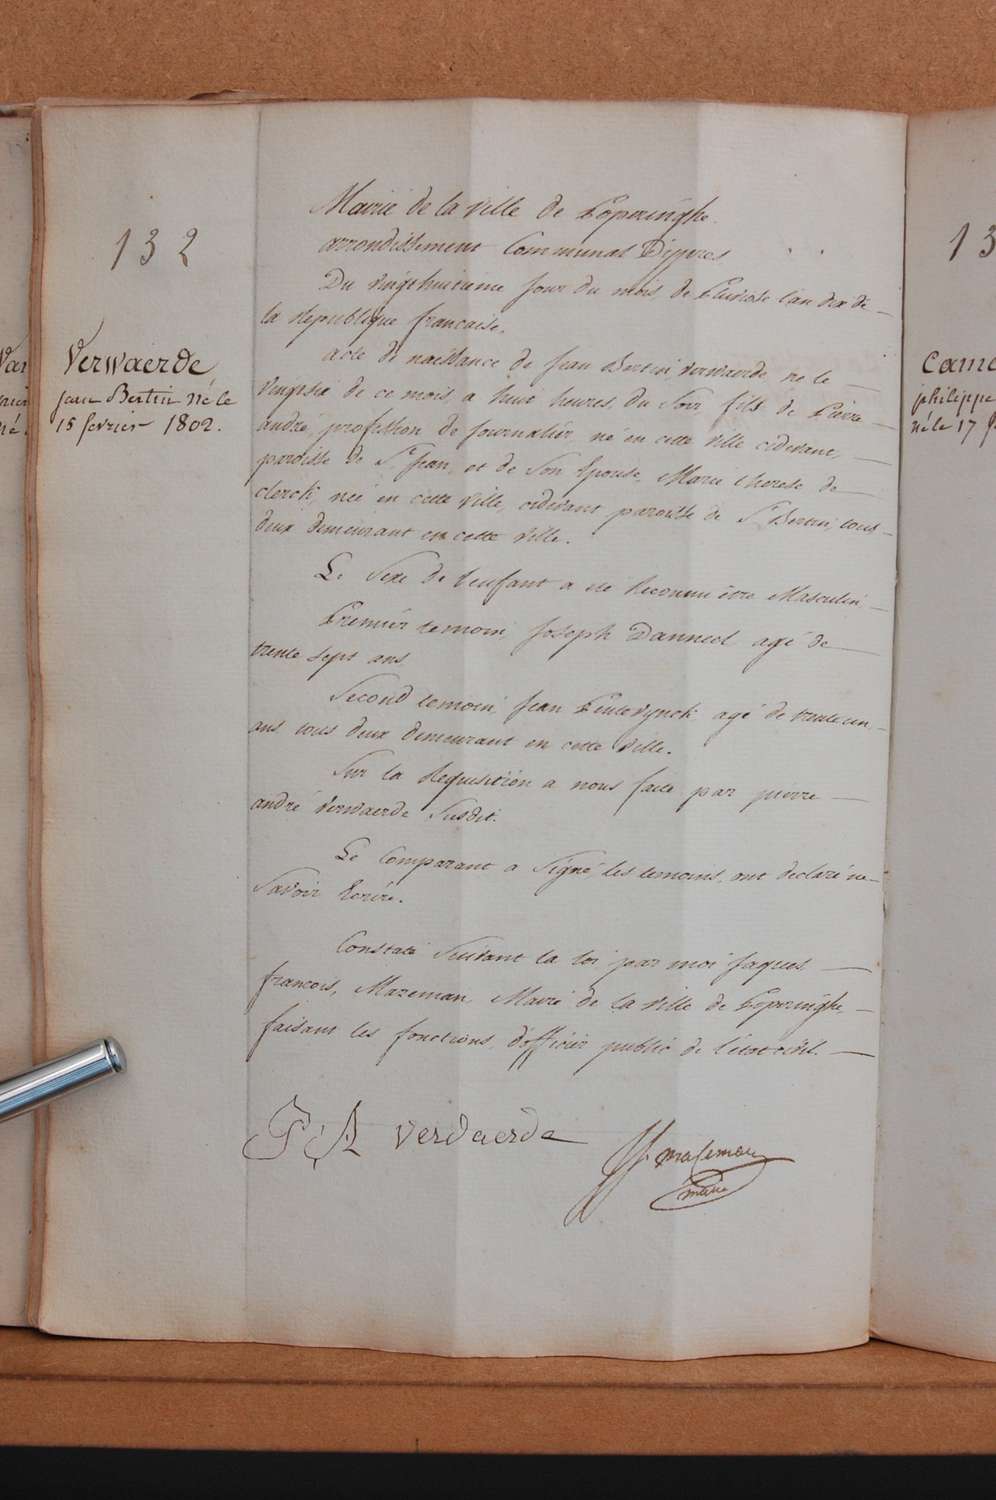 132
Verwaerde
jean Bertin né le
15 fevrier 1802.
Mairie de la ville de Poperinghe.
arrondissement Communal D'ippres
Du vingthuitieme jour du mois de Pluviose l'an dix de
la Republique francaise.
acte de naissance de Jean Bertin, verwaerde né le
vingtsix de ce mois a huit heures, du Soir fils de Pierre
andré, profession de Journalier, né en cette ville cidevant
paroisse de St Jean, et de Son Epouse, Marie therese de
clerck, née en cette ville, cidevant paroisse de St Bertin, tous
deux demeurant en cette ville.
Le Sexe de l'enfant a été Reconnu être Masculin
Premier temoin, Joseph Danneel agé de
trente sept ans
Second temoin, Jean agé de trente un
ans, tous deux demeurant en cette ville.
Sur la Requisition a nous faite par pierre
andré verwaerde Susdit.
Le Comparant a Signé, les temoins, ont declaré ne
Savoir Ecrire.
Constaté Suivant la loi par moi Jaques
francois, Mazeman Maire de la ville de Poperinghe
faisant les fonctions, d'officier public de l'état civil.
P: A verdaerde
JF. mazeman
maire
13
came
philippe
né le 17 f